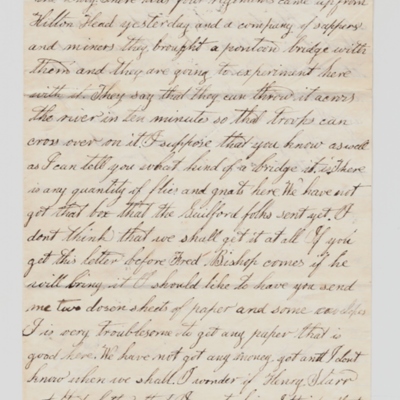 there was four regiments came up from
Hilton Head yesterday and a company of sappers
and miners they brought a pontoon bridge with
them and they are going to experiment here
with it. They say that they can throw it across
the river in ten minutes so that troops can
cross over on it I suppose that you know as well
as I can tell you what kind of a bridge it is There
is any quantity of flies and gnats here We have not
got that box that the Guilford folks sent yet. I
dont think that we shall get it at all If you
get this letter before Fred. Bishop comes if he
will bring it I should like to have you send
me two dosen sheets of paper and some
I is very troublesome to get any paper that is
good here. We have not got any money got and I dont
know when we shall. I wonder if Henry Starr